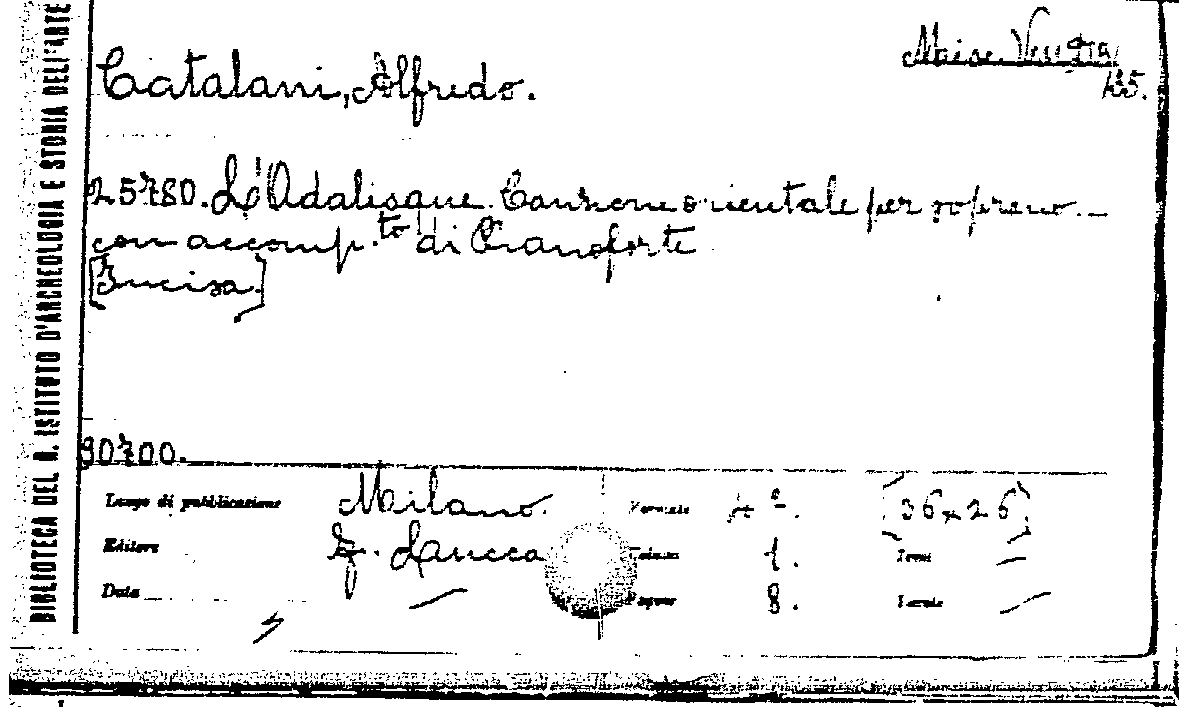 BIBLIOTECA DEL R. ISTITUTO D'ARCHEOLOGIA E STORIA DELL'ARTE
Catalani, Alfredo.
135.
25780. L'Odalisque. Canzone orientale per soprano
con accomp.to di Pianoforte
[Incisa]
30700.
Luogo di pubblicazione Milano. Formato 4º. [36x26]
Editore F. Lucca Volumi 1. Tomi —
Data — Pagine 8. Tavole —